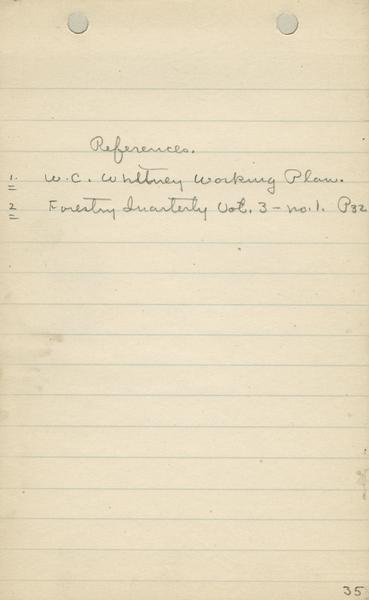 References.
1. W.C. Whitney Working Plan.
2 Forestry Quarterly Vol. 3 - no. 1. P32
35